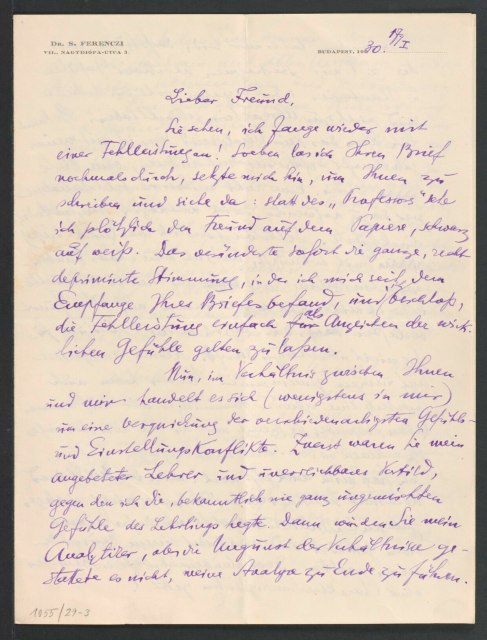 Dr. S. FERENCZI
VII., NAGYDIÓFA-UTCA 3.
BUDAPEST, 1930. 17/I
Lieber Freund,
Sie sehen, ich fange wieder mit
einer Fehlleistung an! Soeben las ich Ihren Brief
nochmals durch, setzte mich hin, um Ihnen zu
schreiben und siehe da: statt des „Professors“ sehe
ich plötzlich den Freund auf dem Papiere, schwarz
auf weiß. Das veränderte sofort die ganze, recht
deprimierte Stimmung, in der ich mich seit dem
Empfange Ihres Briefes befand, und ich beschloß,
die Fehlleistung einfach als Anzeichen der wirk-
lichen Gefühle gelten zu laßen.
Nun, im Verhältnis zwischen Ihnen
und mir handelt es sich (wenigstens in mir)
um eine Verquickung der verschiedenartigsten Gefühls-
und Einstellungskonflikte. Zuerst waren Sie mein
angebeteter Lehrer und unerreichbares Vorbild,
gegen den ich die, bekanntlich nie ganz ungemischten
Gefühle des Lehrlings hegte. Dann wurden Sie mein
Analytiker, aber die Ungunst der Verhältnisse ge-
stattete es nicht, meine Analyse zu Ende zu führen.
1055/29-3